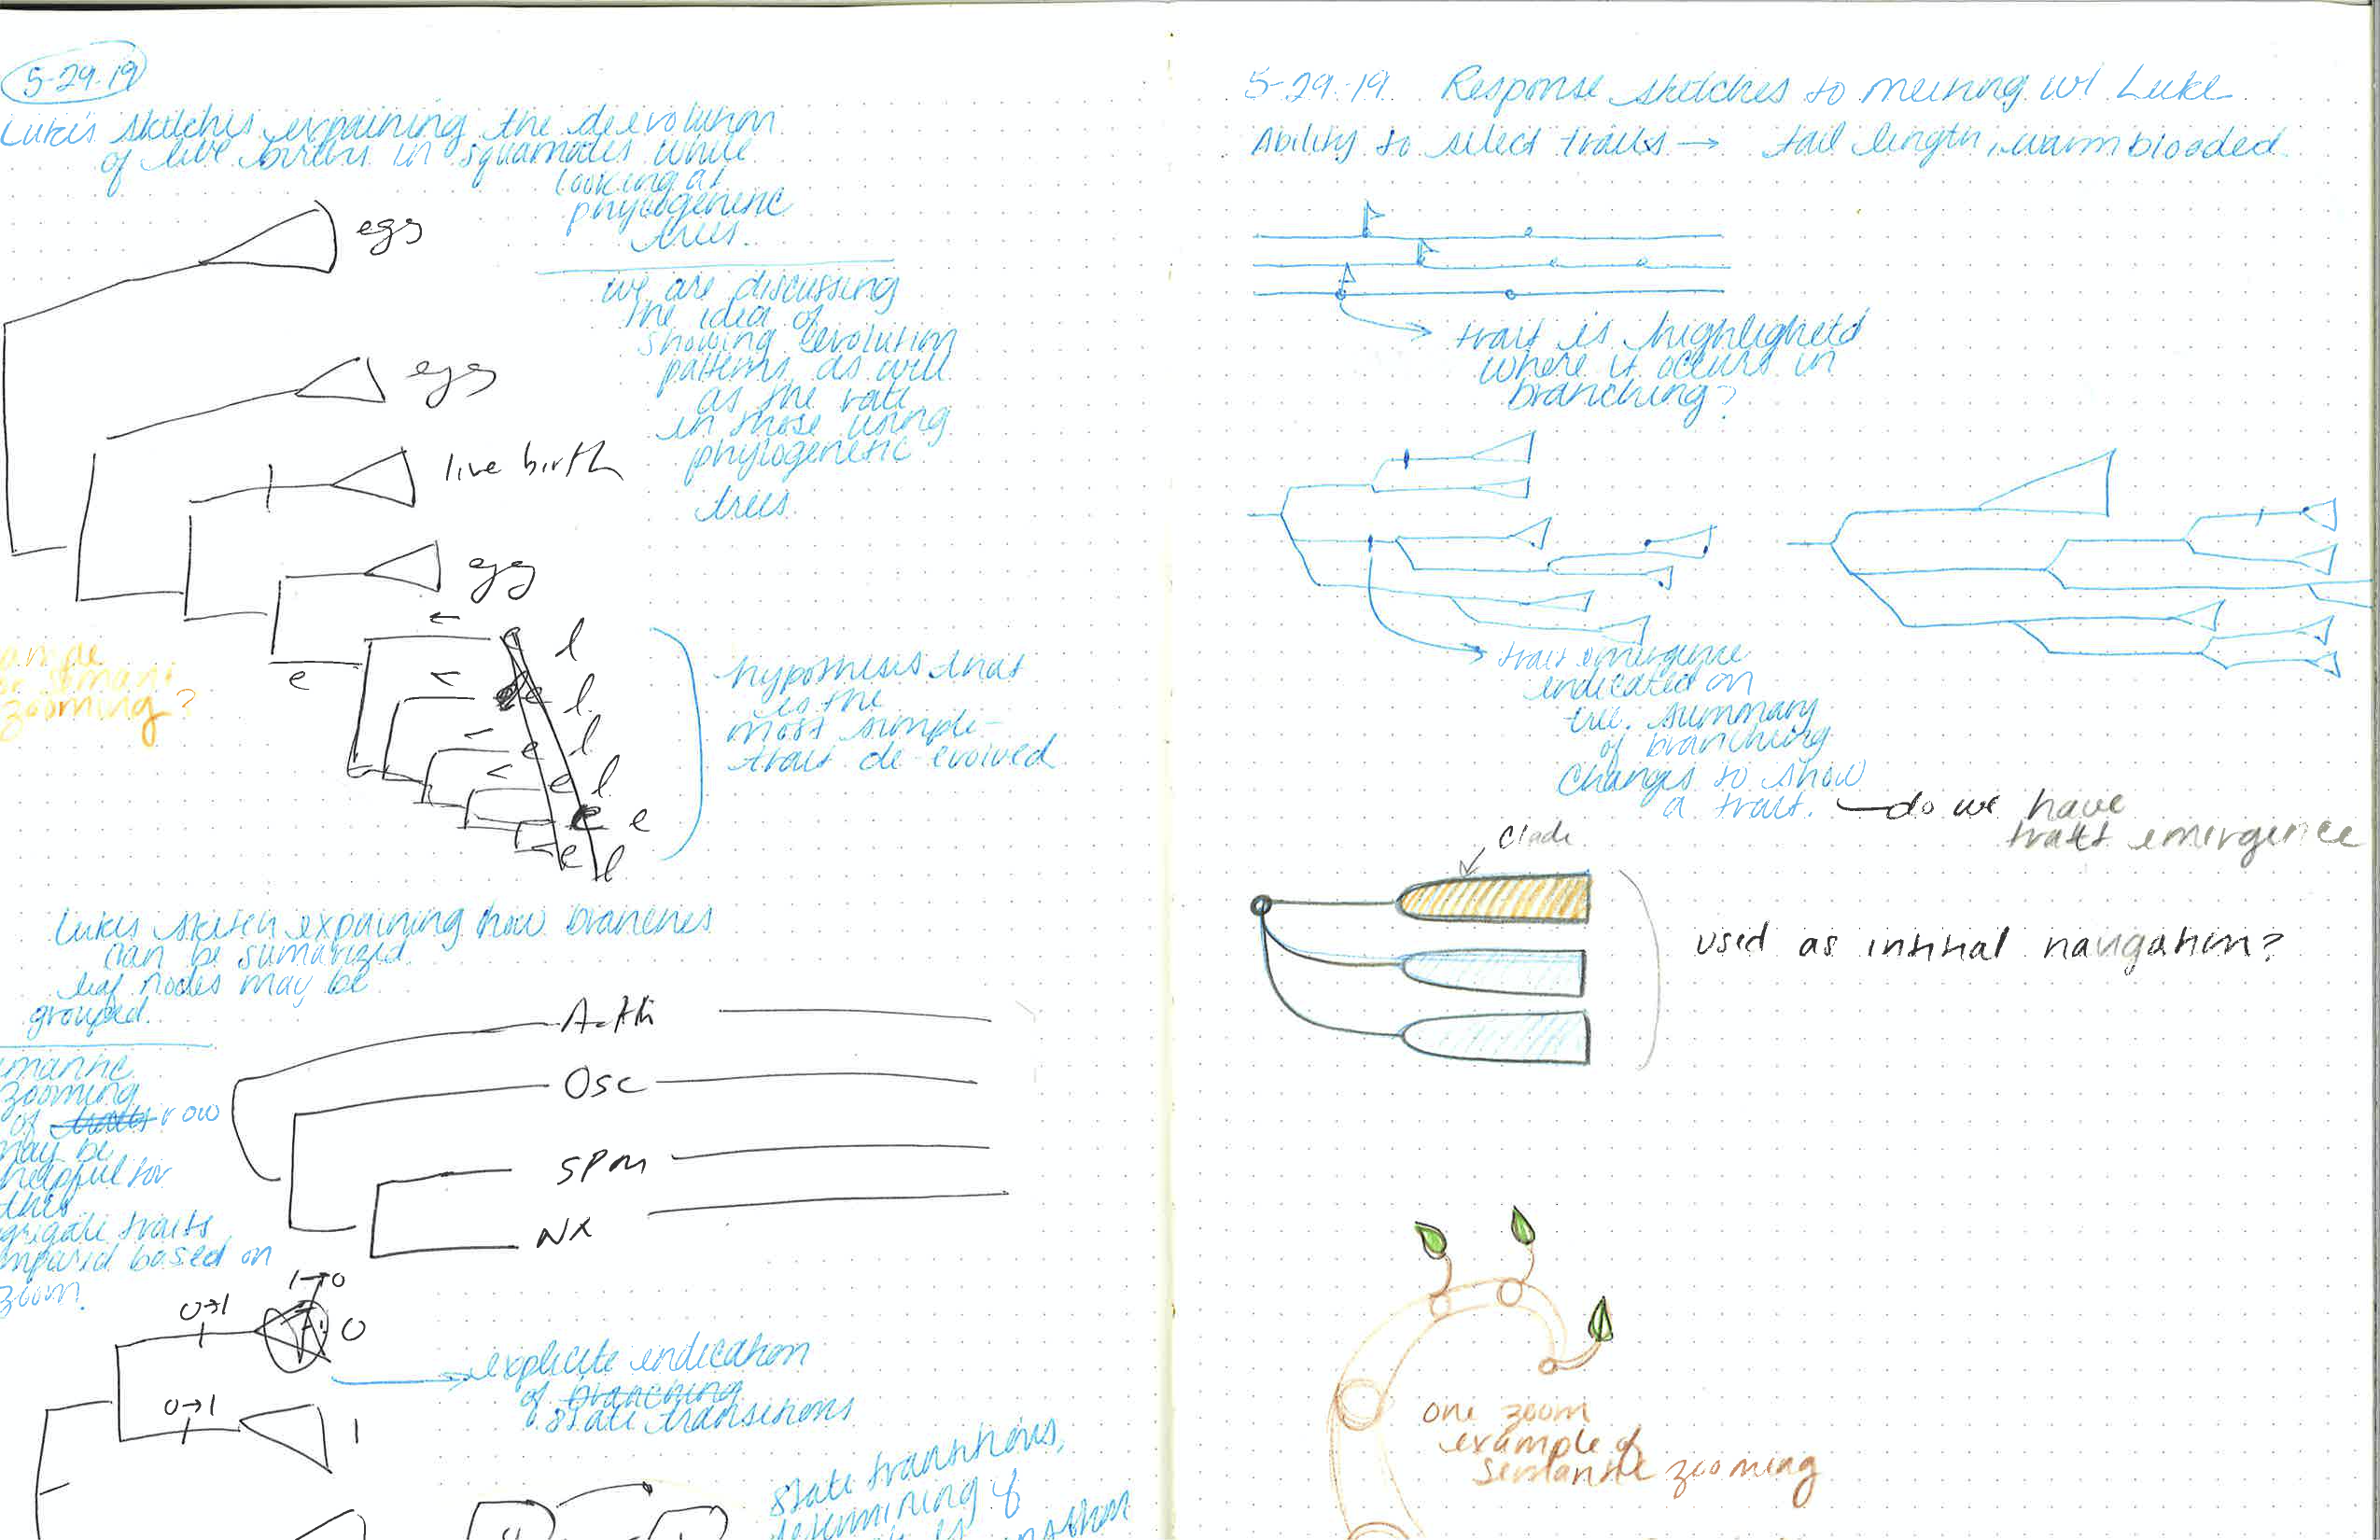 5-29-19
Luke's sketches expaining the deevolution
of live births in squamates while
looking at
phylogenetic
trees.
we are discussing
the idea of
showing evolution
patterns as well
as the rate
in those using
phylogenetic
trees.
egg
egg
live birth
egg
e
l
e l
e l
e l
e e
e l
zooming?
hypothesis that
is the
most simple-
trait de-evolved
Lukes sketch expaining how branches
can be sumarized.
leaf nodes may be
grouped.
zooming
of traits row
may be
helpful for
this
traits
based on
zoom.
Osc
SPM
NX
0→1
1→0
0
0→1
1
explicite indication
of branching
state transitions
state transitions,
determining if
5-29-19 Response sketches to meeting w/ Luke
Ability to select traits → tail length, warm blooded
trait is highlighetd
where it occurs in
branching?
trait emergence
indicated on
tree. summary
of branching
changes to show
a trait. — do we have
trait emergence
clade
used as initial navigation?
one zoom
example of
semantic zooming